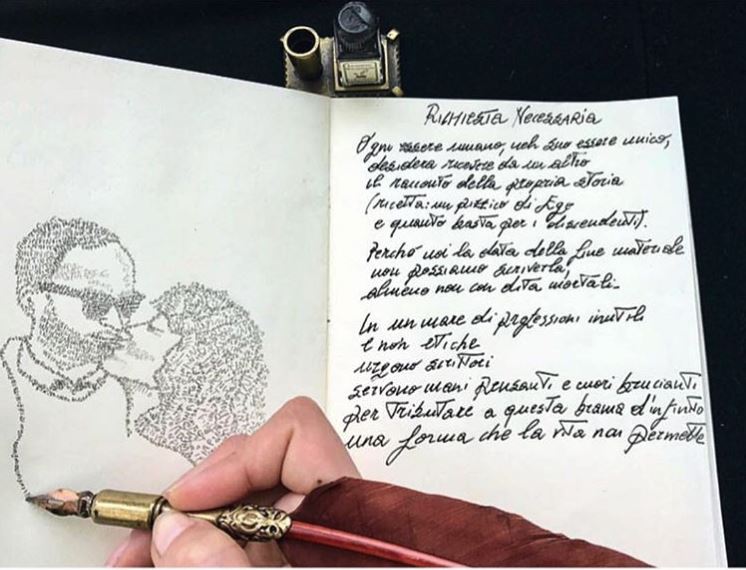 Richiesta Necessaria
Ogni essere umano, nel suo essere unico,
desidera ricevere da un altro
il racconto della propria storia
(ricetta: un pizzico di Ego
e quanto basta per i discendenti).
Perché noi la data della fine materiale
non possiamo scriverla,
almeno non con dita mortali.
In un mare di professioni inutili
e non etiche
urgono scrittori
servono mani pensanti e cuori brucianti
per tributare a questa brama d'infinito
una forma che la vita non permette